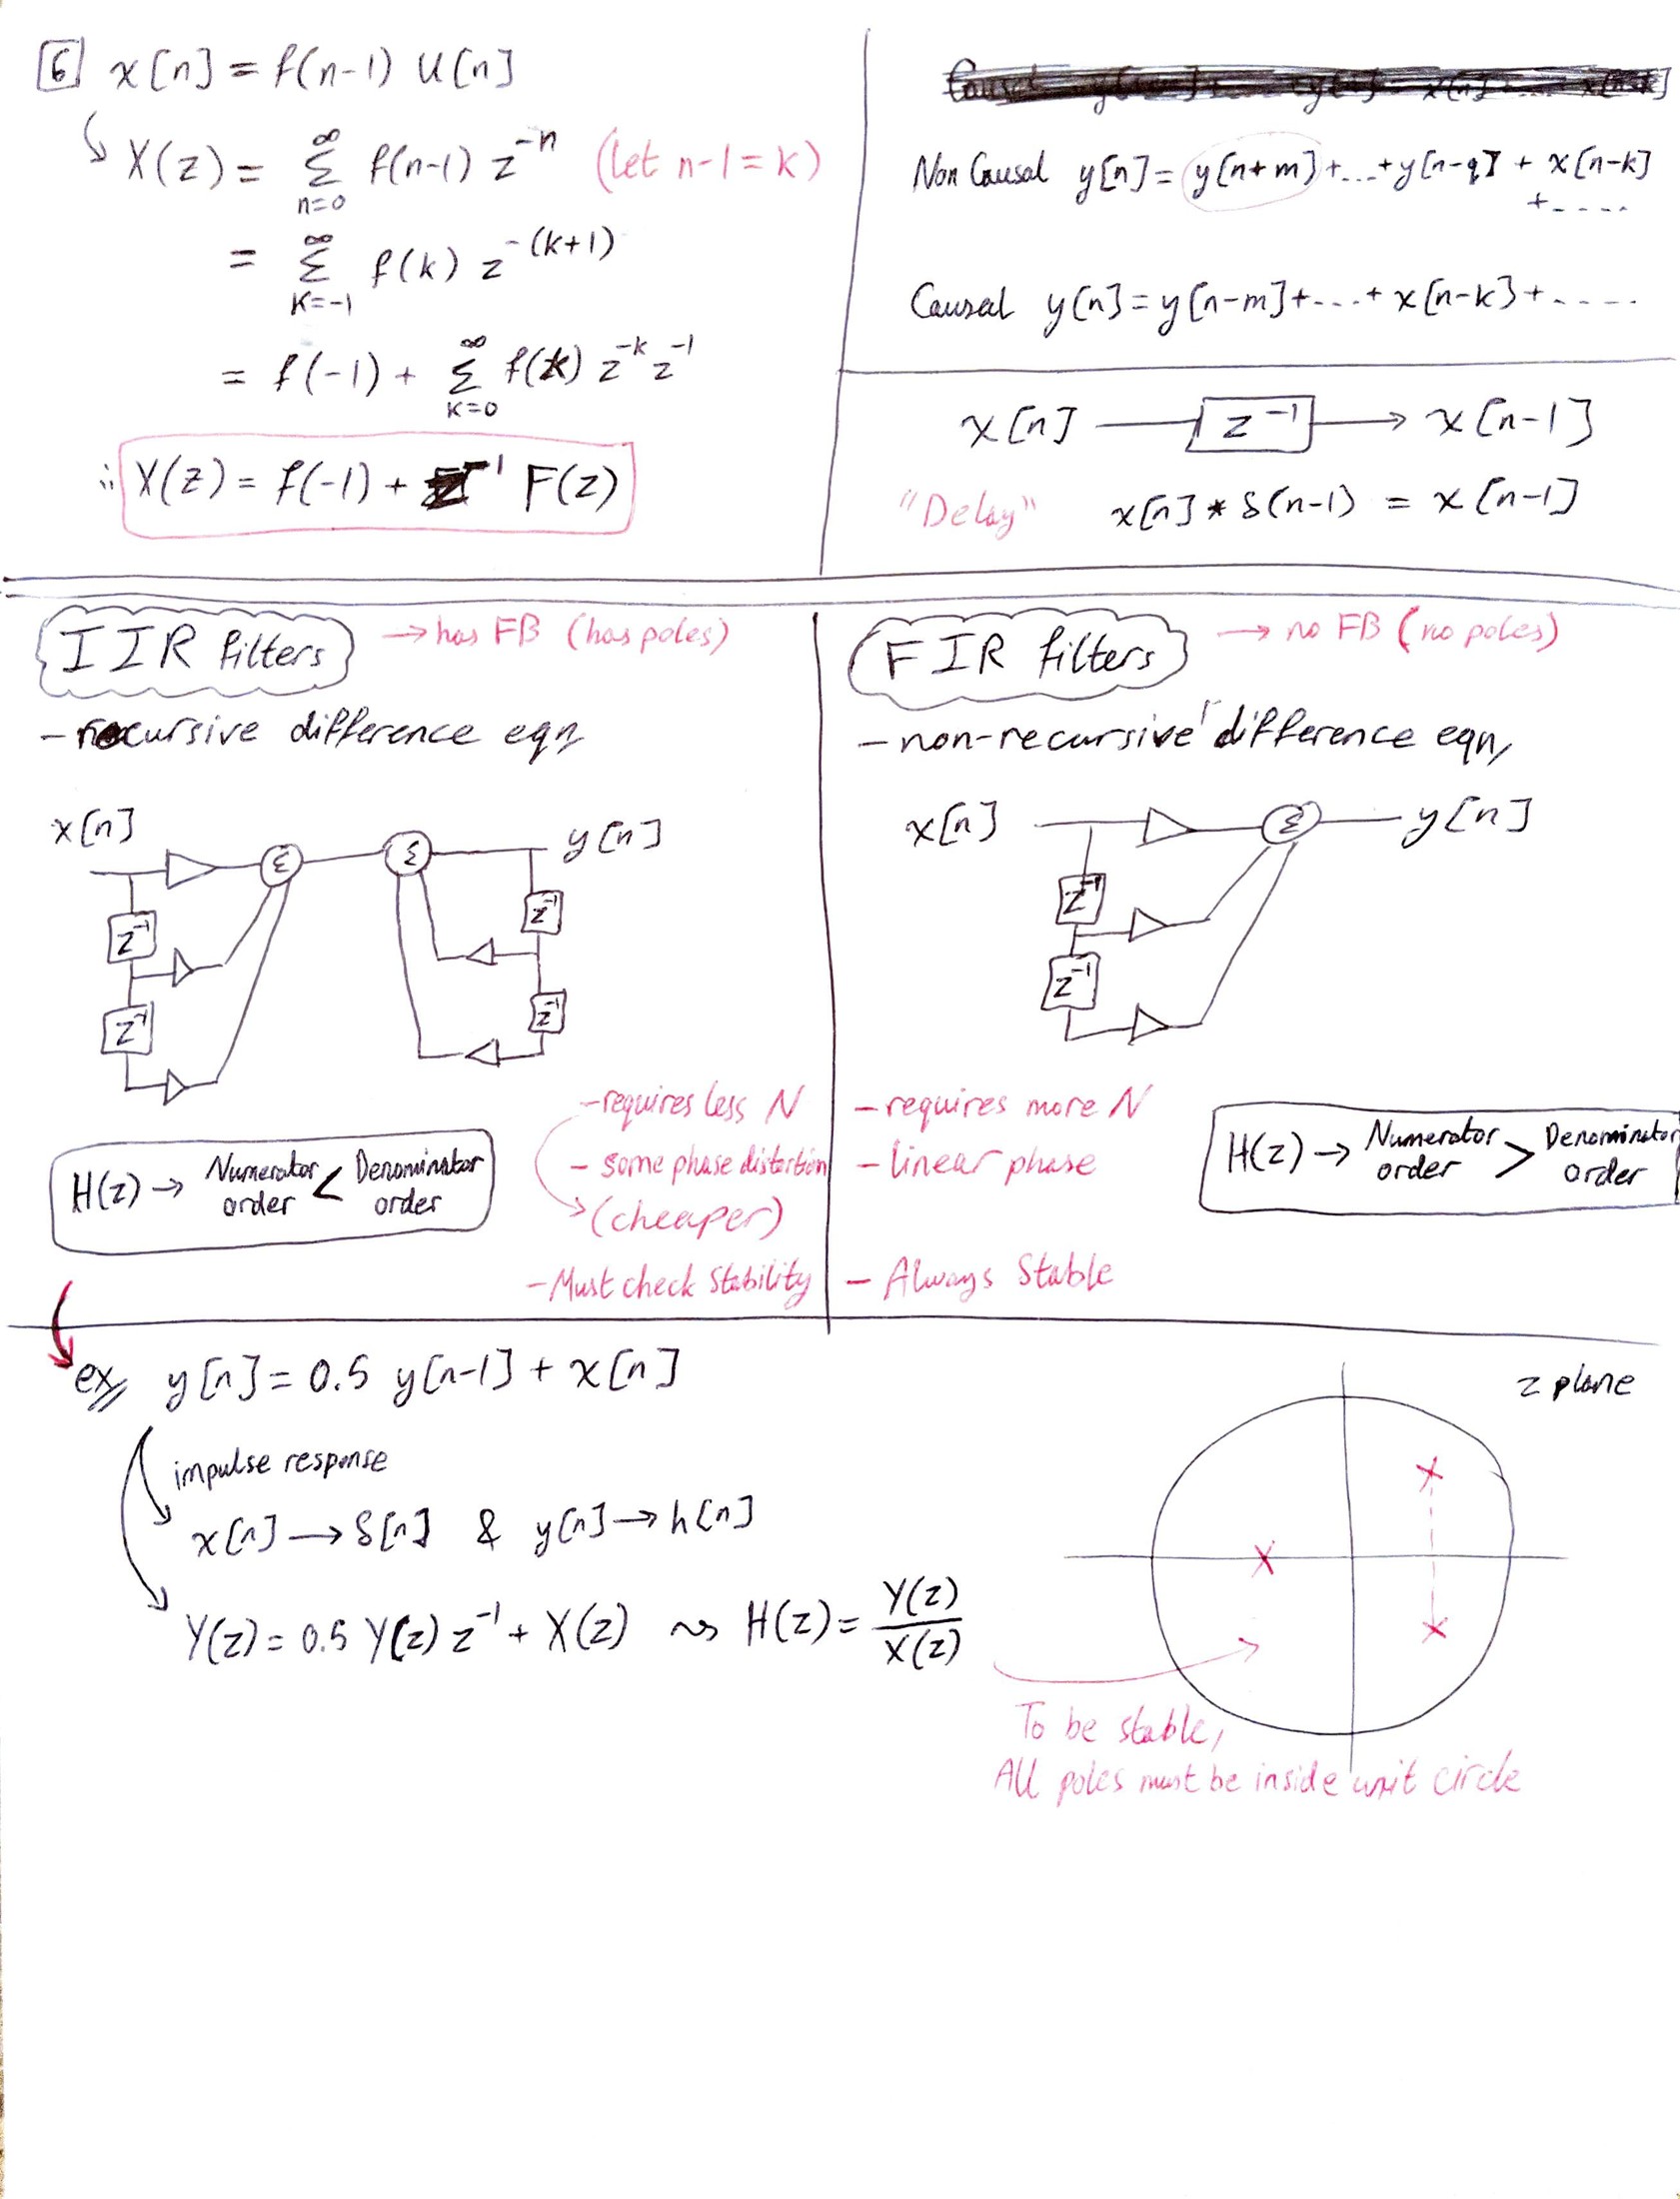 6 x[n] = f(n-1) u[n]
X(z) = Σ_{n=0}^{∞} f(n-1) z^{-n} (let n-1 = k)
= Σ_{k=-1}^{∞} f(k) z^{-(k+1)}
= f(-1) + Σ_{k=0}^{∞} f(k) z^{-k} z^{-1}
∴ X(z) = f(-1) + z^{-1} F(z)
Non Causal y[n] = y[n+m] + ... + y[n-q] + x[n-k]
+ ....
Causal y[n] = y[n-m] + .... + x[n-k] + .....
x[n] → z^{-1} → x[n-1]
"Delay" x[n] * δ(n-1) = x[n-1]
IIR filters → has FB (has poles)
- recursive difference eqn
x[n] Σ Σ y[n]
z^{-1} z^{-1}
z^{-1} z^{-1}
- requires less N
- some phase distortion
(cheaper)
H(z) → Numerator order < Denominator order
- Must check stability
FIR filters → no FB (no poles)
- non-recursive difference eqn
x[n] Σ y[n]
z^{-1}
z^{-1}
- requires more N
- linear phase
H(z) → Numerator order > Denominator order
- Always Stable
ex y[n] = 0.5 y[n-1] + x[n]
impulse response
x[n] → δ[n] & y[n] → h[n]
Y(z) = 0.5 Y(z) z^{-1} + X(z) ⇝ H(z) = Y(z)/X(z)
z plane
To be stable,
All poles must be inside unit circle